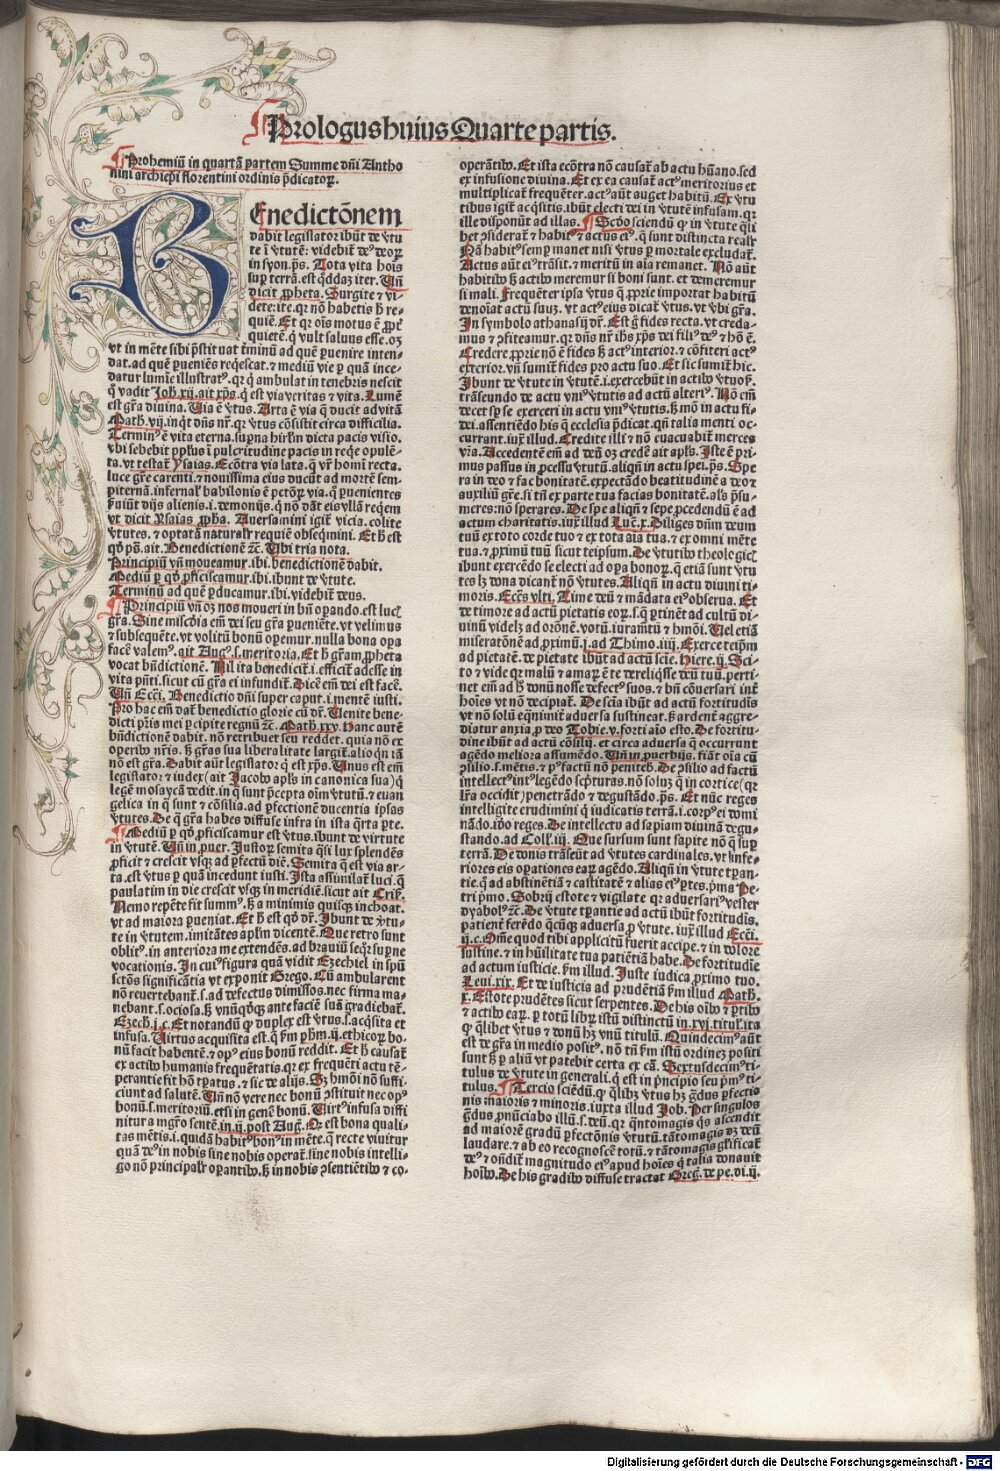 Prologus huius Quarte partis.
Prohemiū in quartā partem Summe dñi Antho
nini archiepi florentini ordinis p̄dicatoꝝ.
Benedictōnem
dabit legislator ibūt de ṽtu
te ī ṽtutē: videbit̄ deꝰ deoꝝ
in syon. ps. Tota vita hoīs
suꝑ terrā. est q̄ddaꝫ iter. Uñ
dicit ꝓpheta. Surgite ⁊ vi⸗
dete: ite. qꝛ nō habetis hͨ re⸗
quiē. Et qꝛ oīs motus ē ꝓpt̄
quietē. q̄ vult saluus esse. oꝫ
vt in mēte sibi p̄stituat t̄minū ad quē ꝑuenire inten⸗
dat. ad quē ꝑueniēs reqͥescat. ⁊ mediū vie ꝑ quā ince⸗
datur lumīe illustratꝰ. qꝛ q̄ ambulat in tenebris nescit
q̄ vadit Joh̄. xij. ait xp̄s. q̄ est via veritas ⁊ vita. Lumē
est gr̄a diuina. Via ē ṽtus. Arta ē via q̄ ducit ad vitā
Math̄. vij. inqͥt dn̄s nr̄. qꝛ ṽtus cōsistit circa difficilia.
Terminꝰ ē vita eterna. suꝑna hirl̄m dicta pacis visio.
vbi sehebit ppl̄us ī pulcritudine pacis in reqͥe opulē⸗
ta. vt testat̄ Ysaias. Ecōtra via lata. q̄ vr̄ homī recta.
luce gr̄e carenti. ⁊ nouissima eius ducūt ad mortē sem⸗
piternā. infernal̄ babilonis ē pctōꝝ via. q̄ ꝑuenientes
ẜuiūt dijs alienis. i. demonijs. q̄ nō dāt eis vllā reqͥem
vt dicit Ysaias ꝓph̄a. Auersamini igit̄ vicia. colite
ṽtutes. ⁊ optatā naturalr̄ requiē obseqͥmini. Et hͨ est
qd̄ ps̄. ait. Benedictionē ⁊c̄. Ubi tria nota.
Principiū vn̄ moueamur. ibi. benedictionē dabit.
Mediū ꝑ qd̄ ꝓficiscamur. ibi. ibunt de ṽtute.
Terminū ad quē ꝑducamur. ibi. videbit̄ deus.
Principiū vn̄ oꝫ nos moueri in bn̄ opando. est lucꝭ
gr̄a. Sine misc̄dia em̄ dei seu gr̄a pueniēte. vt velimus
⁊ subsequēte. vt volitū bonū opemur. nulla bona opa
facē valemꝰ. ait Augꝰ. s. meritoria. Et hͨ gr̄am ꝓpheta
vocat bn̄dictionē. Nil ita benedicit̄. i. efficit̄ adesse in
vita pn̄ti. sicut cū gr̄a ei infundit̄. Dicē em̄ dei est facē.
Uñ Ecci. Benedictio dn̄i super caput. i. mentē iusti.
Pro hac em̄ dat̄ benedictio glorie cū dr̄. Uenite bene⸗
dicti pr̄is mei ꝑcipite regnū ⁊c̄. Math̄. xxv. Hanc autē
bn̄dictionē dabit. nō retribuet seu reddet. quia nō ex
operibꝰ nr̄is. ẜꝫ gr̄as sua liberalitate largit̄. alioqͥn iā
nō est gr̄a. Dabit aūt legislator q̄ est xp̄s. Unus est em̄
legislator ⁊ iudex (ait Jacob apl̄s in canonica sua) q̄
legē mosaycā dedit. in q̄ sunt p̄cepta oīm ṽtutū. ⁊ euan
gelica in q̄ sunt ⁊ cōsilia. ad ꝑfectionē ducentia ipsas
ṽtutes. De q̄ gr̄a habes diffuse infra in ista q̄rta ꝑte.
Mediū ꝑ qd̄ ꝓficiscamur est ṽtus. ibunt de virtute
in ṽtutē. Uñ in puer. Justoꝝ semita q̄si lux splendēs
ꝓficit ⁊ crescit vsqꝫ ad ꝑfectū diē. Semita q̄ est via ar⸗
ta. est ṽtus ꝑ quā incedunt iusti. Ista assimilat̄ luci. q̄
paulatim in die crescit vsqꝫ in meridiē. sicut ait Criss̄.
Nemo repēte fit summꝰ. ẜꝫ a minimis quisqꝫ inchoat.
vt ad maiora ꝑueniat. Et hͨ est qd̄ dr̄. Ibunt de ṽtu⸗
te in ṽtutem. imitātes apl̄m dicentē. Que retro sunt
oblitꝰ. in anteriora me extendēs. ad brauiū seqͦꝛ suꝑne
vocationis. In cuiꝰ figura quā vidit Ezechiel in spū
sctōs significātia vt exponit Grego. Cū ambularent
nō reuertebant̄. s. ad defectus dimissos. nec firma ma⸗
nebant. s. ociosa. ẜꝫ vnūqd̄qꝫ ante faciē suā gradiebat̄.
Ezech̄. j. c. Et notandū q̄ duplex est ṽtus. s. acqͥsita et
infusa. Virtus acquisita est. q̄ ẜm ph̄m. ij. ethicoꝝ bo⸗
nū facit habentē. ⁊ opꝰ eius bonū reddit. Et hͨ causat̄
ex actibꝰ humanis frequētatis. qꝛ ex frequēti actu tē⸗
perantie fit hō tꝑatus. ⁊ sic de alijs. Sꝫ hmōi nō suffi⸗
ciunt ad salutē. Uñ nō vere nec bonū ꝯstituit nec opꝰ
bonū. s. meritoriū. etsi in genē bonū. Virtꝰ infusa diffi
nitur a mgr̄o sentē. in. ij. post Auḡ. Qꝫ est bona quali⸗
tas mētis. i. quidā habitꝰ bonꝰ in mēte. q̄ recte viuitur
quā deꝰ in nobis sine nobis operat̄. sine nobis intelli⸗
go nō principalr̄ oꝑantibꝰ. ẜꝫ in nobis ꝯsentiētibꝰ ⁊ co⸗
operātibꝰ. Et ista ecōtra nō causat̄ ab actu hūano. sed
ex infusione diuina. Et ex ea causat̄ actꝰ meritorius et
multiplicat̄ frequēter. actꝰ aūt auget habitū. Ex ṽtu
tibus igit̄ acqͥsitis. ibūt electi dei in ṽtutē infusam. qꝛ
ille disponūt ad illas. Scd̄o sciendū qꝫ in ṽtute qͣli
bet ꝯsiderat̄ ⁊ habitꝰ ⁊ actus eiꝰ. q̄ sunt distincta realr̄
Nā habitꝰ semꝑ manet nisi ṽtus ꝑ mortale excludat̄.
Actus aūt eiꝰ trāsit. ⁊ meritū in aīa remanet. Nō aūt
habitibꝰ ẜꝫ actibꝰ meremur si boni sunt. et demeremur
si mali. Frequēter ipsa ṽtus q̄ ꝓprie importat habitū
denoīat actū suuꝫ. vt actꝰ eius dicat̄ ṽtus. vt ṽbi gr̄a.
In symbolo athanasij dr̄. Est gͦ fides recta. vt creda⸗
mus ⁊ ꝯfiteamur. qꝛ dn̄s nr̄ ihs̄ xp̄s dei filiꝰ deꝰ ⁊ hō ē.
Credere ꝓprie nō ē fides ẜꝫ actꝰ interior. ⁊ cōfiteri actꝰ
exterior. vn̄ sumit̄ fides pro actu suo. Et sic sumit̄ hic.
Ibunt de ṽtute in ṽtutē. i. exercebūt in actibꝰ ṽtuoſ.
trāseundo de actu vniꝰ ṽtutis ad actū alteriꝰ. Nō em̄
decet sp̄ se exerceri in actu vniꝰ ṽtutis. ẜꝫ mō in actu fi⸗
dei. assentiēdo his q̄ ecclesia p̄dicat. qn̄ talia menti oc⸗
currant. iuxᵃ illud. Credite illi ⁊ nō euacuabit̄ merces
vr̄a. Accedentē em̄ ad deū oꝫ credē ait apl̄s. Iste ē pri⸗
mus passus in ꝓcessu ṽtutū. aliqn̄ in actu spei. ps̄. Spe
ra in deo ⁊ fac bonitatē. expectādo beatitudinē a deo ⁊
auxiliū gr̄e. si tn̄ ex parte tua facias bonitatē. als̄ p̄su⸗
meres: nō sperares. De spe aliqn̄ ⁊ sepe ꝓcedendū ē ad
actum charitatis. iuxᵃ illud Luc̄. x. Diliges dn̄m deum
tuū ex toto corde tuo ⁊ ex tota aīa tua. ⁊ ex omni mēte
tua. ⁊ ꝓximū tuū sicut teipsum. De ṽtutibꝰ theologicꝭ
ibunt exercēdo se electi ad opa bonoꝝ. q̄ etiā sunt ṽtu
tes lꝫ dona dicant̄ nō ṽtutes. Aliqn̄ in actu diuini ti⸗
moris. Ecc̄s vlti. Time deū ⁊ mādata eiꝰ obserua. Et
de timore ad actū pietatis eoꝝ. s. q̄ ꝑtinēt ad cultū di⸗
uinū videlꝫ ad orōnē. votū. iuramt̄ū ⁊ hmōi. Uel etiā
miseratōnē ad ꝓximū. j. ad Thimo. iiij. Exerce teip̄m
ad pietatē. de pietate ibūt ad actū scīe. Hiere. ij. Sci⸗
to ⁊ vide qꝛ malū ⁊ amaꝝ ē te dereliqͥsse deū tuū. ꝑti⸗
net em̄ ad hͨ donū nosse defectꝰ suos. ⁊ bn̄ cōuersari int̄
hoīes vt nō decipiat̄. De scīa ibūt ad actū fortitudīs
vt nō solū eqͣnimit̄ aduersa sustineat. ẜꝫ ardent̄ aggre⸗
diatur anxia. ꝓ deo Tobie. v. forti aīo esto. De fortitu⸗
dine ibūt ad actū cōsilij. et circa aduersa q̄ occurrunt
agēdo meliora assumēdo. Uñ in ꝓuerbijs. fiāt oīa cū
ꝯsilio. s. mētis. ⁊ pꝰ factū nō penitebꝭ. De ꝯsilio ad factū
intellectꝰ intꝰ legēdo scpturas. nō soluꝫ q̄ in cortice (qꝛ
lr̄a occidit) penetrādo ⁊ degustādo. ps̄. Et nūc reges
intelligite erudimini q̄ iudicatis terrā. i. corpꝰ ei domi
nādo. ideo reges. De intellectu ad sapiam diuinā degu⸗
stando. ad Coll̄. iij. Que sursum sunt sapite nō q̄ suꝑ
terrā. De donis trāseūt ad ṽtutes cardinales. vt infe⸗
riores eis operationes eaꝝ agēdo. Aliqn̄ in ṽtute tꝑan⸗
tie. q̄ ad abstinētiā ⁊ castitatē ⁊ alias eiꝰ ꝑtes. p̄ma Pe⸗
tri p̄mo. Sobrij estote ⁊ vigilate qꝛ aduersariꝰ vester
dyabolꝰ ⁊c̄. De ṽtute tꝑantie ad actū ibūt fortitudīs.
patient̄ ferēdo q̄cūqꝫ aduersa ꝓ ṽtute. iuxᵃ illud Ecci.
ij. c. Om̄e quod tibi applicitū fuerit accipe. ⁊ in dolore
sustine. ⁊ in hūilitate tua patiētiā habe. De fortitudīe
ad actum iusticie. ẜm illud. Juste iudica ꝓximo tuo.
Leui. xix. Et de iusticia ad prudētiā ẜm illud Math̄.
x. Estote prudētes sicut serpentes. De his oībꝰ ⁊ ꝑtibꝰ
⁊ actibꝰ eaꝝ. ꝑ totū libꝝ istū distinctū in. xvj. titul̄. ita
qꝫ qͥlibet ṽtus ⁊ donū hꝫ vnū titulū. Quindecimꝰ aūt
est de gr̄a in medio positꝰ. nō tn̄ ẜm istū ordinez positi
sunt ẜꝫ ꝑ aliū vt patebit certa ex cā. Sextusdecimꝰ ti⸗
tulus de ṽtute in generali. q̄ est in p̄ncipio seu p̄mꝰ ti⸗
tulus. Tercio sciēdū. qꝫ qͥlibꝫ ṽtus hꝫ gͣdus ꝑfectio
nis maioris ⁊ minoris. iuxta illud Job. Per singulos
gͣdus ꝓnūciabo illū. s. deū. qꝛ qͣntomagis qͥs ascendit
ad maiorē gradū ꝑfectōnis ṽtutū. tātomagis dꝫ deū
laudare. ⁊ ab eo recognoscē totū. ⁊ tātomagis gl̄ificat̄
deꝰ ⁊ on̄dit̄ magnitudo eiꝰ apud hoīes q̄ talia donauit
hoībꝰ. De his gradibꝰ diffuse tractat Greḡ. de pe. di. ij.
Digitalisierung gefördert durch die Deutsche Forschungsgemeinschaft - DFG